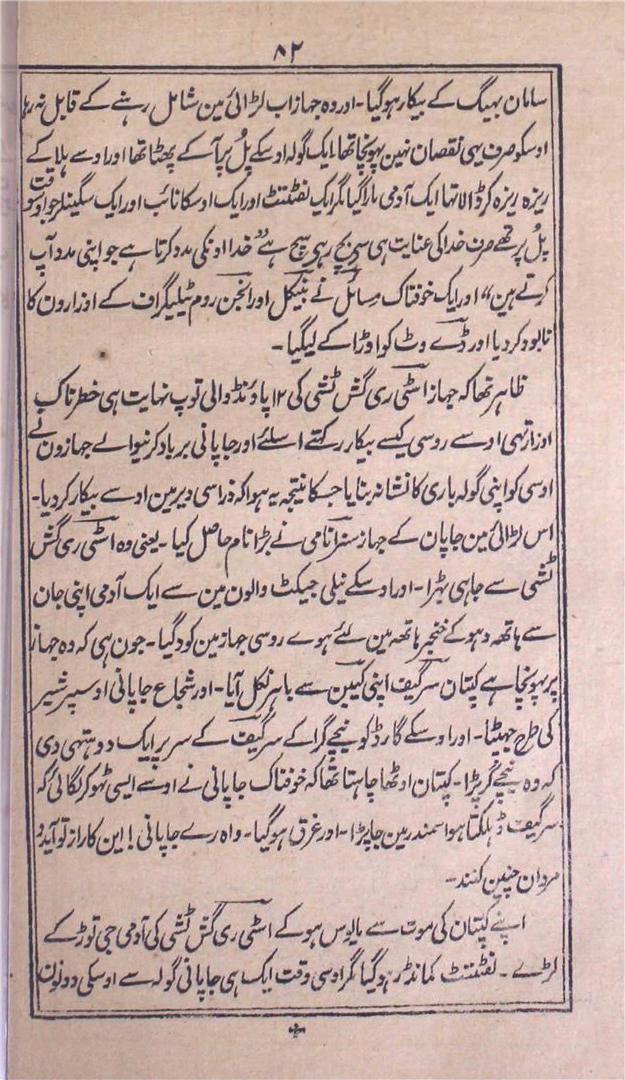 ۸۲
سامان بہیگ کے بیکار ہوگیا۔ اور وہ جہاز اب لڑائی مین شامل رہنے کے قابل نہ رہا
اوسکو صرف یہی نقصان نہین پہونچا تھا۔ ایک گولہ اوسکے پُل پر آ کے پھٹا تھا اور اوسے ہلا کے
ریزہ ریزہ کر ڈالا تہا ایک آدمی مارا گیا مگر ایک لفٹننٹ اور ایک اوسکا نائب اور ایک سگنیلر جو اوسوقت
پُل پر تھے صرف خدا کی عنایت ہی سے بچ رہی سچ ہے "خدا اونکی مدد کرتا ہے جو اپنی مدد آپ
کرتے ہین" اور ایک خوفناک مسائل نے بنیکل اور انجن روم ٹیلیگراف کے اوزارون کا
نابود کر دیا اور ڈے وٹ کو اوڑا کے لیگیا۔
ظاہر تھا کہ جہاز اسٹی ری گش ٹشی کی ۱۲ پاؤنڈ والی توپ نہایت ہی خطرناک
اوزار تہی اوسے روسی کیسے بیکار رکھتے اسلئے اور جاپانی برباد کرنیوالے جہازون نے
اوسی کو اپنی گولہ باری کا نشانہ بنایا جسکا نتیجہ یہ ہوا کہ ذرا سی دیر مین اوسے بیکار کر دیا۔
اس لڑائی مین جاپان کے جہاز سنزا نامی نے بڑا نام حاصل کیا۔ یعنی وہ اسٹی ری گش
ٹشی سے جا ہی بہڑا۔ اور اوسکے نیلی جیکٹ والون مین سے ایک آدمی اپنی جان
سے ہاتھ دہو کے خنجر ہاتھ مین لئے ہوے روسی جہاز مین کود گیا۔ جون ہی کہ وہ جہاز
پر پہونچا ہے کپتان سرگیف اپنی کیبن سے باہر نکل آیا۔ اور شجاع جاپانی اوسپر شیر
کی طرح جہپٹا۔ اور اوسکے گارڈ کو نیچے گرا کے سرگیف کے سر پر ایک دو ہتہی دی
کہ وہ نیچے گر پڑا۔ کپتان اوٹھا چاہتا تھا کہ خوفناک جاپانی نے اوسے ایسی ٹھوکر لگائی کہ
سرگیف ڈہلکتا ہوا سمندر مین جا پڑا۔ اور غرق ہوگیا۔ واہ رے جاپانی! این کار از تو آید و
مردان چنین کنند۔
اپنے کپتان کی موت سے مایوس ہو کے اسٹی ری گش ٹشی کی آدمی جی توڑ کے
لڑے۔ لفٹننٹ کمانڈر ہوگیا مگر اوسی وقت ایک ہی جاپانی گولہ سے اوسکی دونون